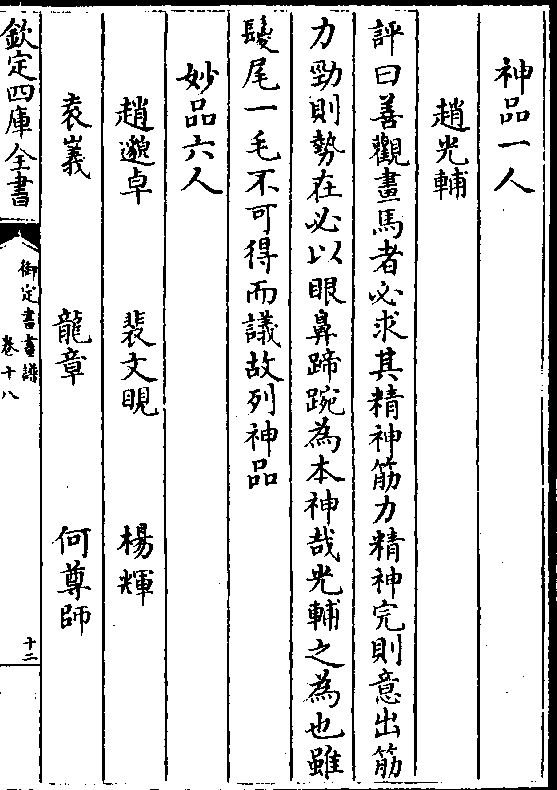 神品一人
趙光輔
評曰善觀畫馬者必求其精神筋力精神完則意出筋
力勁則勢在必以眼鼻蹄踠為本神哉光輔之為也雖
鬉尾一毛不可得而議故列神品
妙品六人
趙邈卓 裴文晛 楊輝
袁嶬 龍章 何尊師
欽定四庫全書
御定書畫譜
卷十八
十二